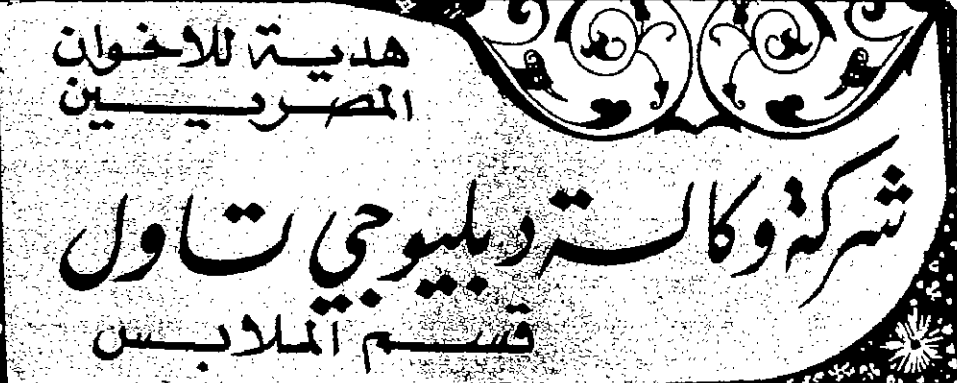 هدية للاخوان
المصريين
شركة وكالة دبليوجي تاول
قسم الملابس